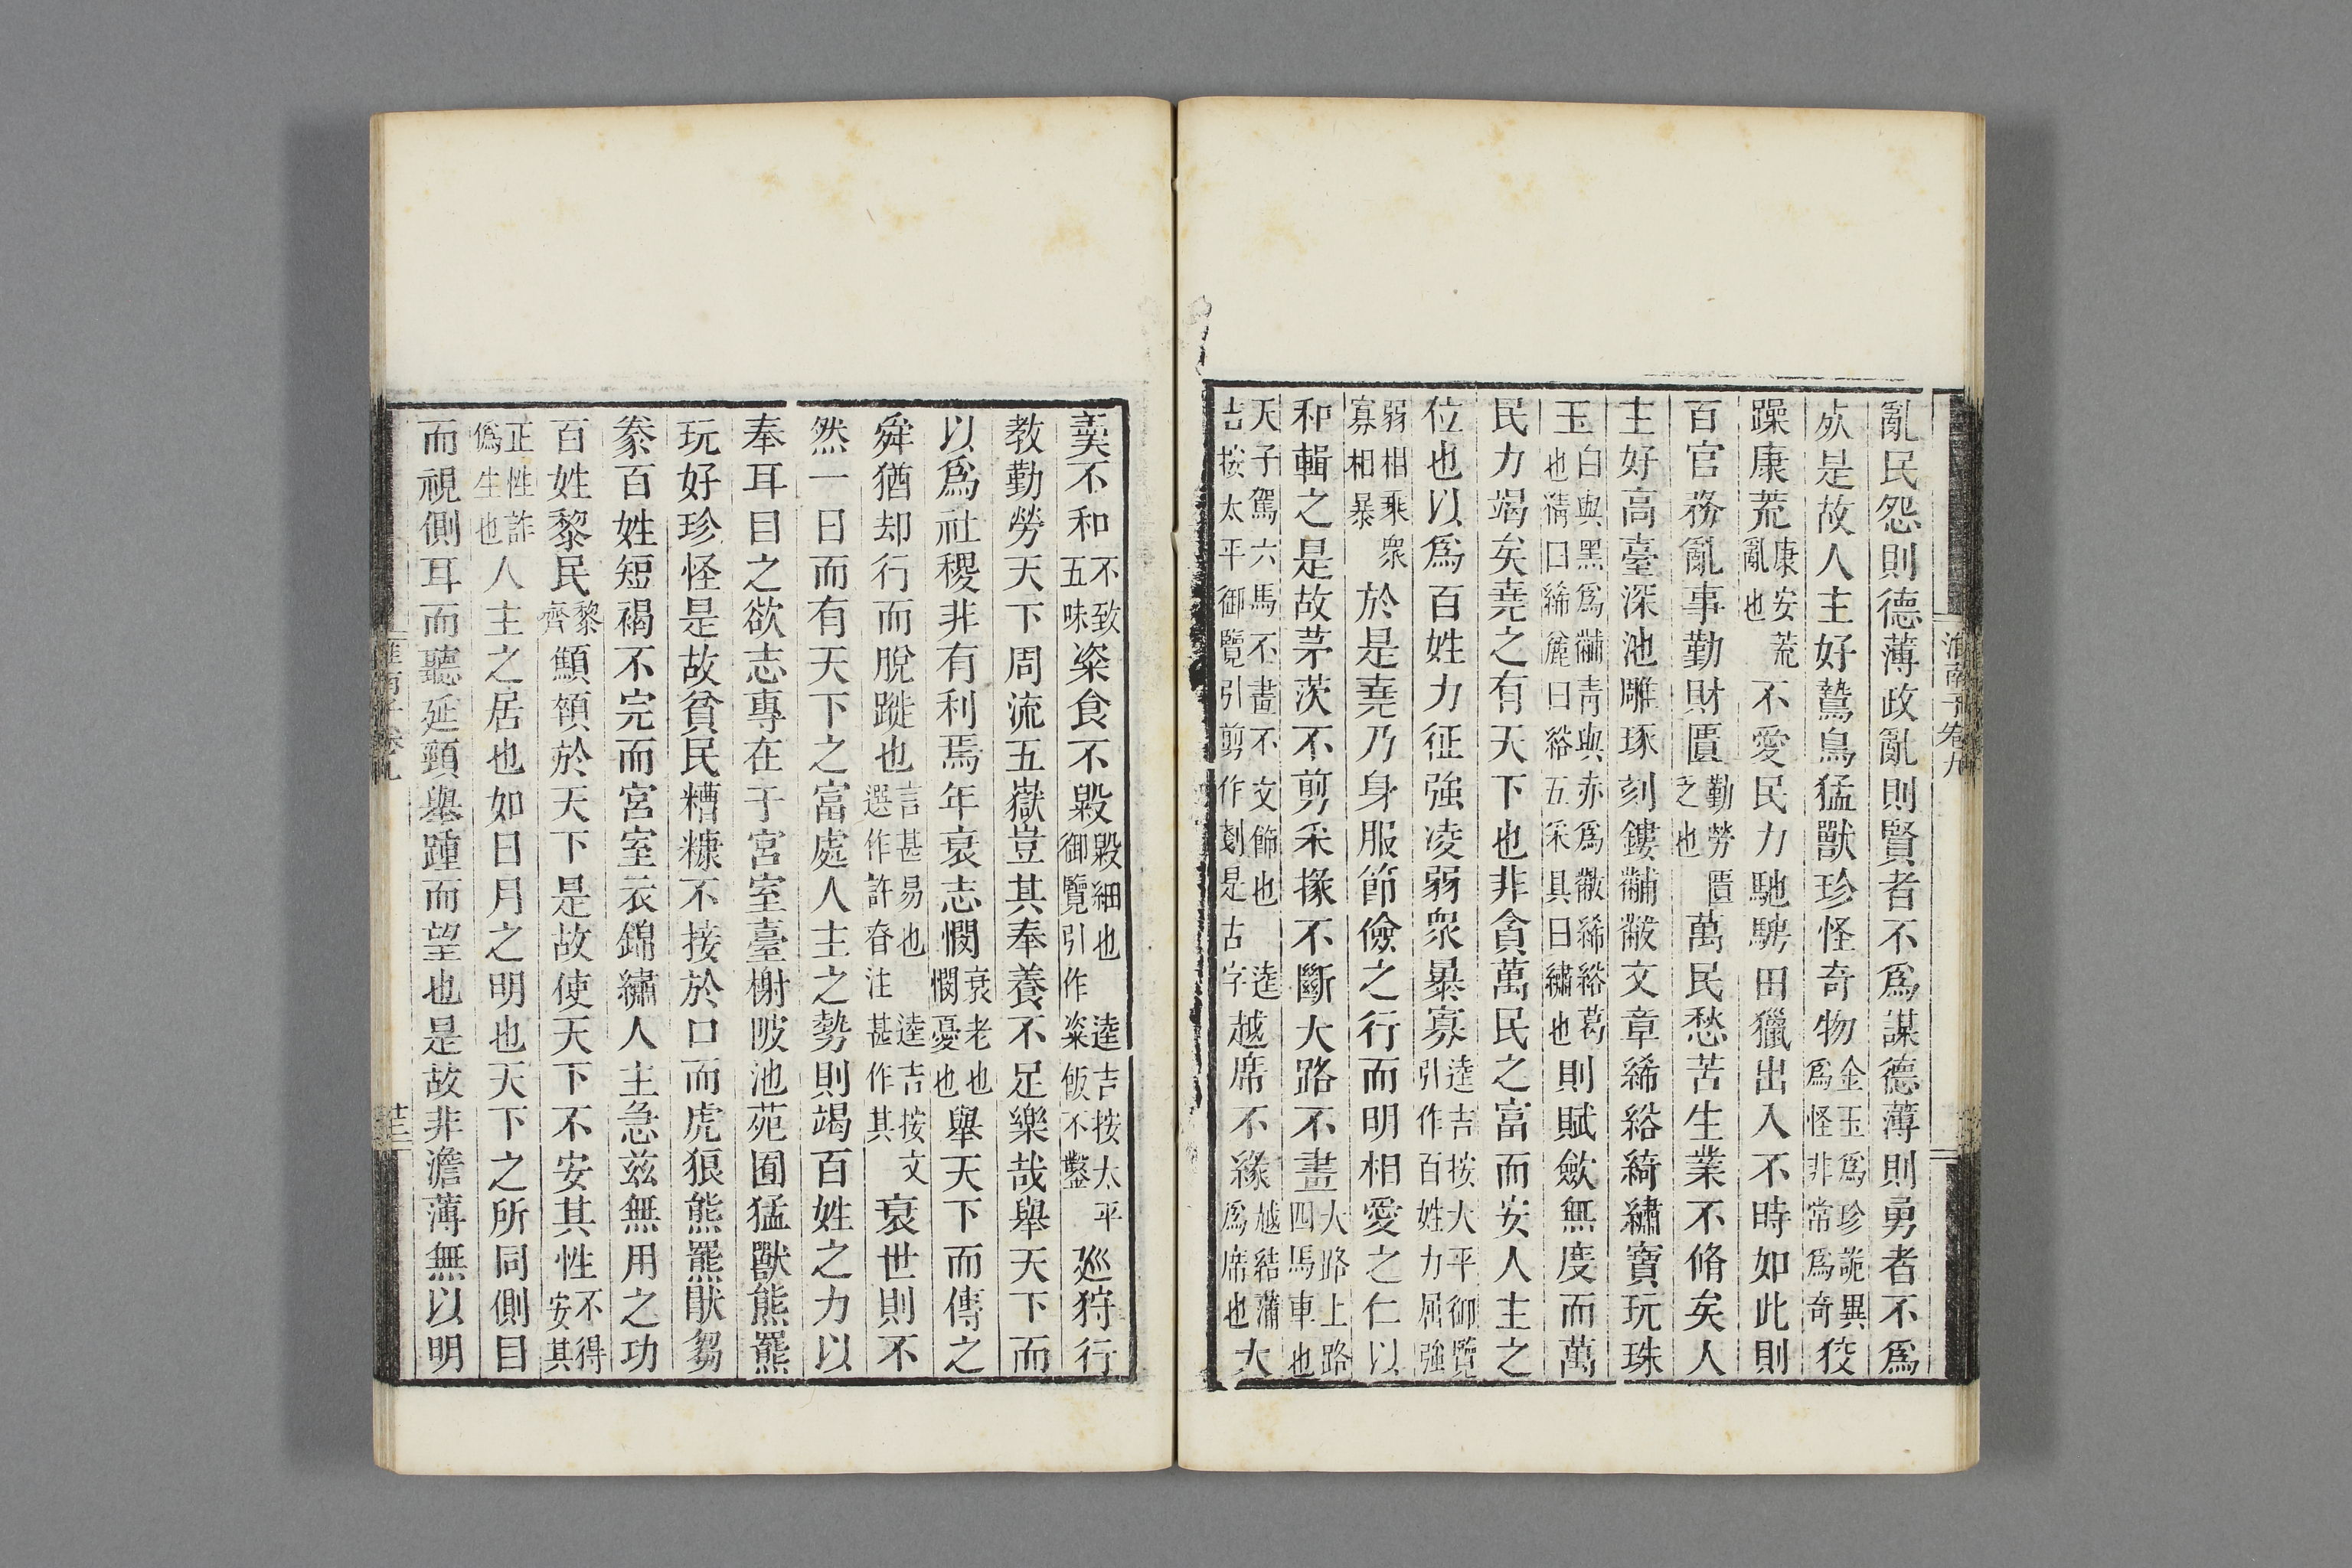 淮南子卷九
亂民怨則德薄政亂則賢者不爲謀德薄則勇者不爲
死是故人主好鷙鳥猛獸珍怪奇物金玉爲珍詭異爲怪非常爲奇狡
躁康荒康安荒亂也不愛民力馳騁田獵出入不時如此則
百官務亂事勤財匱勤勞匱乏也萬民愁苦生業不脩矣人
主好高臺深池雕琢刻鏤黼黻文章絺綌綺繡寶玩珠
玉白與黑爲黼青與赤爲黻絺綌葛也精曰絺麄曰綌五采具曰繡也則賦斂無度而萬
民力竭矣堯之有天下也非貪萬民之富而安人主之
位也以爲百姓力征強凌弱衆暴寡逵吉按大平御覽引作百姓力屈強
弱相乘衆寡相暴於是堯乃身服節儉之行而明相愛之仁以
和輯之是故茅茨不剪采椽不斷大路不畫大路上路四馬車也
天子駕六馬不畫不文飾也逵吉按太平御覽引剪作劃是古字越席不緣越結蒲爲席也大
羹不和不致五味粢食不毇毇細也逵吉按太平御覽引作粢飯不鑿巡狩行
教勤勞天下周流五嶽豈其奉養不足樂哉舉天下而
以爲社稷非有利焉年衰志憫衰老也憫憂也舉天下而傳之
舜猶却行而脫蹝也言甚易也逵吉按文選作許脊注甚作其衰世則不
然一日而有天下之富處人主之勢則竭百姓之力以
奉耳目之欲志專在于宮室臺榭陂池苑囿猛獸熊羆
玩好珍怪是故貧民糟糠不接於口而虎狼熊羆猒芻
豢百姓短褐不完而宮室衣錦繡人主急兹無用之功
百姓黎民黎齊顦顇於天下是故使天下不安其性不得安其
正性詐僞生也人主之居也如日月之明也天下之所同側目
而視側耳而聽延頸舉踵而望也是故非澹薄無以明